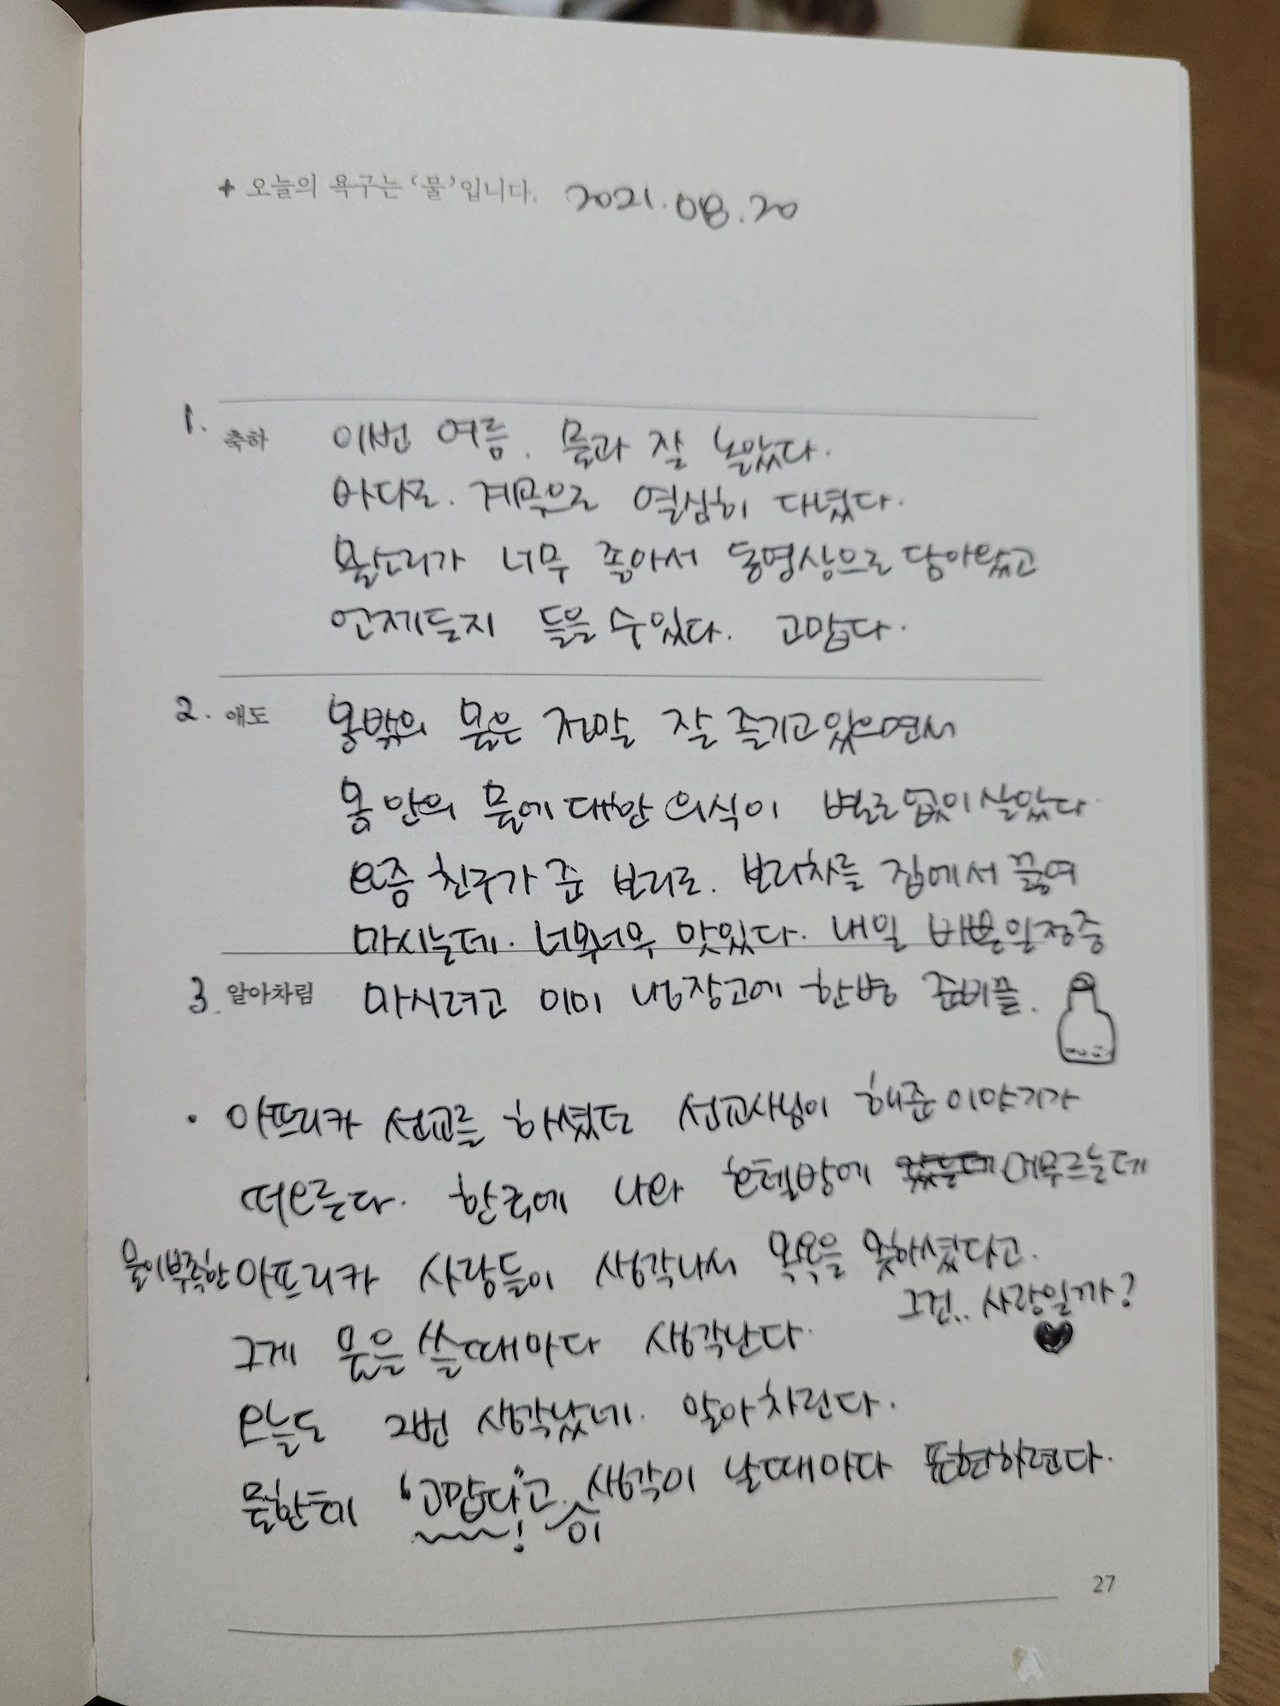 + 오늘의 욕구는 '물'입니다. 2021.08.20
1. 축하 이번 여름. 물과 잘 놀았다.
바다로. 계곡으로 열심히 다녔다.
물소리가 너무 좋아서 동영상으로 담아왔고
언제든지 들을 수 있다. 고맙다.
2. 애도 몸밖의 물은 정말 잘 즐기고 있으면서
몸 안의 물에 대한 의식이 별로 없이 살았다
요즘 친구가 준 보리로. 보리차를 집에서 끓여
마시는데. 너무너무 맛있다. 내일 바쁜 일정중
3. 알아차림 마시려고 이미 냉장고에 한병 준비끝.
· 아프리카 선교를 하셨던 선교사님이 해준 이야기가
떠오른다. 한국에 나와 호텔방에 머무르는데
물이 부족한 아프리카 사람들이 생각나서 목욕을 못하셨다고.
그건.. 사랑일까?
그게 물을 쓸때마다 생각난다.
오늘도 2번 생각났네. 알아차린다.
물한테 "고맙다"고. 생각이 날때마다 표현하련다.
! 이
27